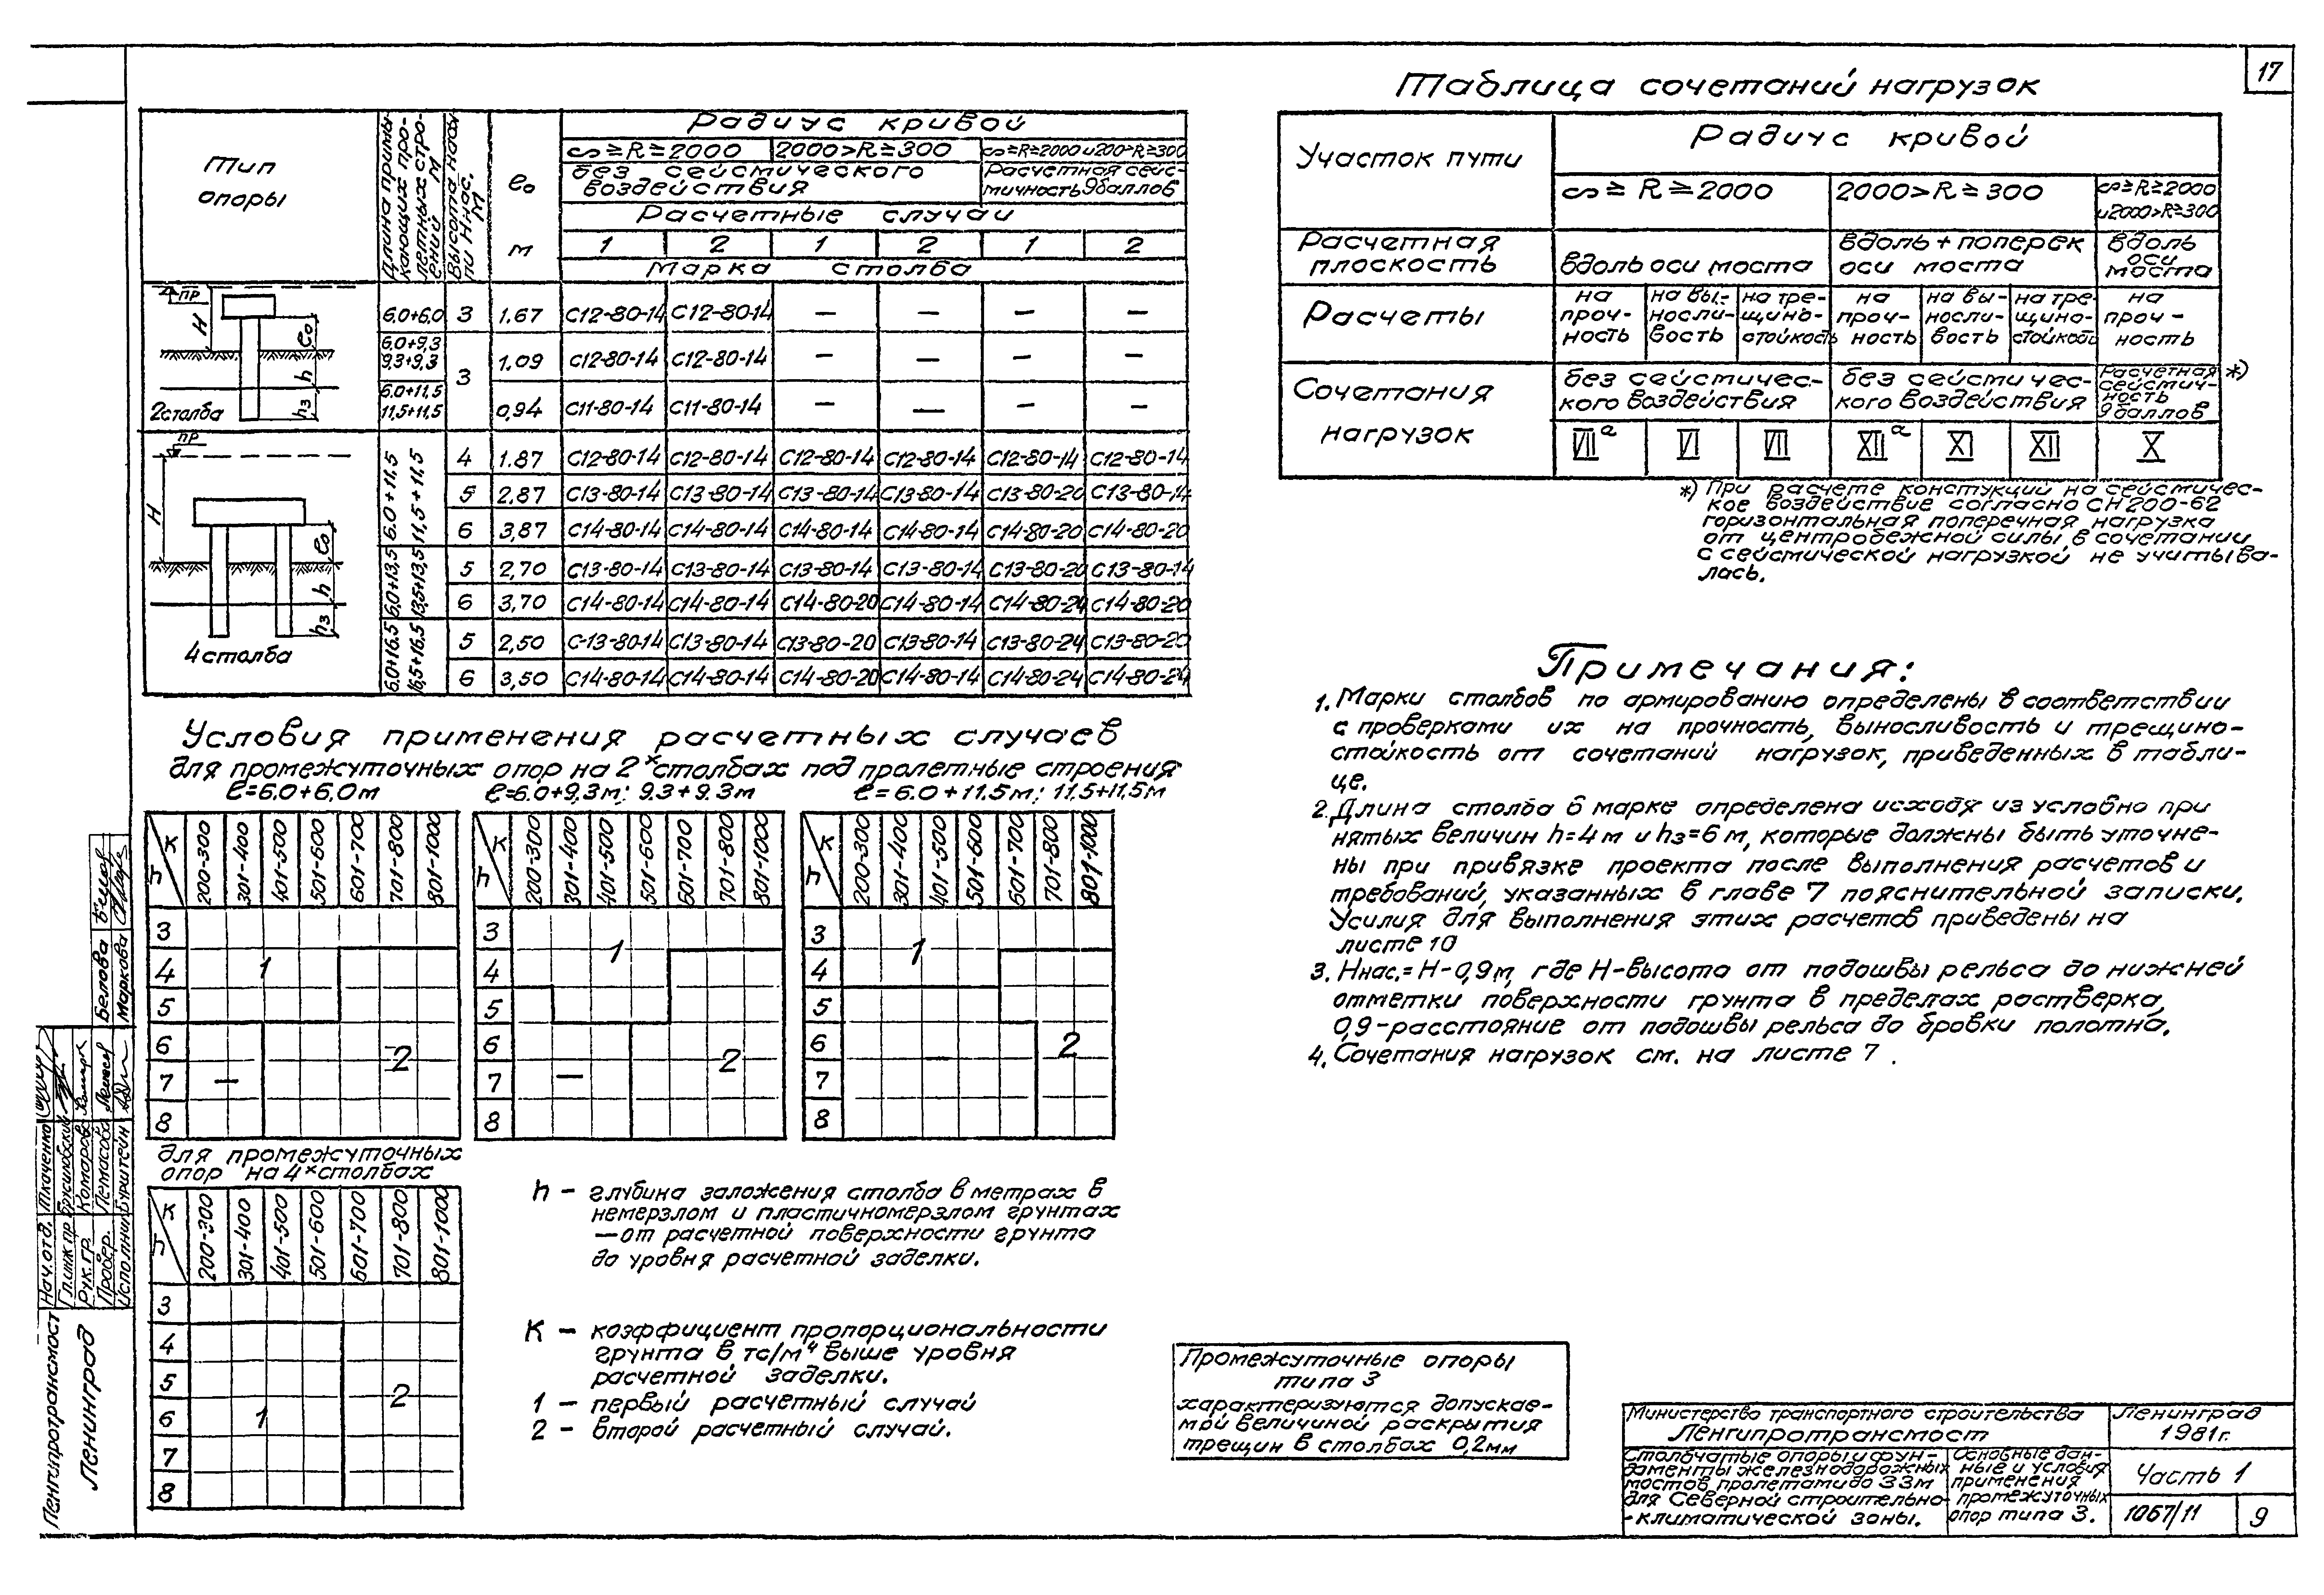 17
Тип опоры
Длина примыкающих пролетных строений м
Высота насыпи Hнас. м
e₀ м
Радиус кривой
∞≥R≥2000
2000>R≥300
∞≥R≥2000 и 200>R≥300
без сейсмического воздействия
Расчетная сейсмичность 9 баллов
Расчетные случаи
1 2 1 2 1 2
Марка столба
ПР
H
e₀
h
h₃
2 столба
6.0+6.0 3 1.67 С12-80-14 С12-80-14 — — — —
6.0+9,3 9.3+9.3 3 1.09 С12-80-14 С12-80-14 — — — —
6.0+11,5 11,5+11,5 0,94 С11-80-14 С11-80-14 — — — —
ПР
H
e₀
h
h₃
4 столба
6.0+11,5 11,5+11,5
4 1.87 С12-80-14 С12-80-14 С12-80-14 С12-80-14 С12-80-14 С12-80-14
5 2,87 С13-80-14 С13-80-14 С13-80-14 С13-80-14 С13-80-20 С13-80-14
6 3,87 С14-80-14 С14-80-14 С14-80-14 С14-80-14 С14-80-20 С14-80-20
6.0+13,5 13,5+13,5
5 2,70 С13-80-14 С13-80-14 С13-80-14 С13-80-14 С13-80-20 С13-80-14
6 3,70 С14-80-14 С14-80-14 С14-80-20 С14-80-14 С14-80-24 С14-80-20
6.0+16.5 16,5+16.5
5 2,50 С-13-80-14 С13-80-14 С13-80-20 С13-80-14 С13-80-24 С13-80-20
6 3,50 С14-80-14 С14-80-14 С14-80-20 С14-80-14 С14-80-24 С14-80-24
Условия применения расчетных случаев
для промежуточных опор на 2ˣ столбах под пролетные строения
ℓ=6.0+6,0м
ℓ=6.0+9,3м; 9.3+9.3м
ℓ=6.0+11.5м; 11,5+11,5м
К h 200-300 301-400 401-500 501-600 601-700 701-800 801-1000
3
4 1
5
6 2
7 —
8
К h 200-300 301-400 401-500 501-600 601-700 701-800 801-1000
3 1
4
5
6 2
7 —
8
К h 200-300 301-400 401-500 501-600 601-700 701-800 801-1000
3 1
4
5
6 — 2
7
8
для промежуточных
опор на 4ˣ столбах
К h 200-300 301-400 401-500 501-600 601-700 701-800 801-1000
3
4
5 2
6 1
7
8
h – глубина заложения столба в метрах в
немерзлом и пластичномерзлом грунтах
—от расчетной поверхности грунта
до уровня расчетной заделки.
К – коэффициент пропорциональности
грунта в тс/м⁴ выше уровня
расчетной заделки.
1 – первый расчетный случай
2 – второй расчетный случай.
Таблица сочетаний нагрузок
Участок пути
Радиус кривой
∞≥R≥2000
2000>R≥300
∞≥R≥2000
и 2000>R≥300
Расчетная плоскость
вдоль оси моста
вдоль + поперек оси моста
вдоль оси моста
Расчеты
на прочность
на выносливость
на трещиностойкость
на прочность
на выносливость
на трещиностойкость
на прочность
Сочетания нагрузок
без сейсмического воздействия
без сейсмического воздействия
Расчетная сейсмичность 9 баллов
*)
VIIᵃ VI VII XIIᵃ XI XII X
*) При расчете констукций на сейсмичес-
кое воздействие согласно СН 200-62
горизонтальная поперечная нагрузка
от центробежной силы в сочетании
с сейсмической нагрузкой не учитыва-
лась.
Примечания:
1. Марки столбов по армированию определены в соответствии
с проверками их на прочность, выносливость и трещино-
стойкость от сочетаний нагрузок, приведенных в табли-
це.
2. Длина столба в марке определена исходя из условно при
нятых величин h=4м и h₃=6м, которые должны быть уточне-
ны при привязке проекта после выполнения расчетов и
требований, указанных в главе 7 пояснительной записки.
Усилия для выполнения этих расчетов приведены на
листе 10
3. Ннас.=Н-0,9м, где Н-высота от подошвы рельса до нижней
отметки поверхности грунта в пределах ростверка,
0,9-расстояние от подошвы рельса до бровки полотна.
4. Сочетания нагрузок см. на листе 7.
Промежуточные опоры
типа 3
характеризуются допускае-
мой величиной раскрытия
трещин в столбах 0,2мм
Министерство транспортного строительства
Ленгипротрансмост
Ленинград
1981г.
Столбчатые опоры и фун-
даменты железнодорожных
мостов пролетами до 33м
для Северной строительно-
-климатической зоны.
Основные дан-
ные и условия
применения
промежуточных
опор типа 3.
Часть 1
1067/11
9
Ленгипротрансмост
Ленинград
Нач.отд. Ткаченко
Гл.инж.пр.
Рук.гр. Комарова
Провер.
Исполнил
Белова
Маркова